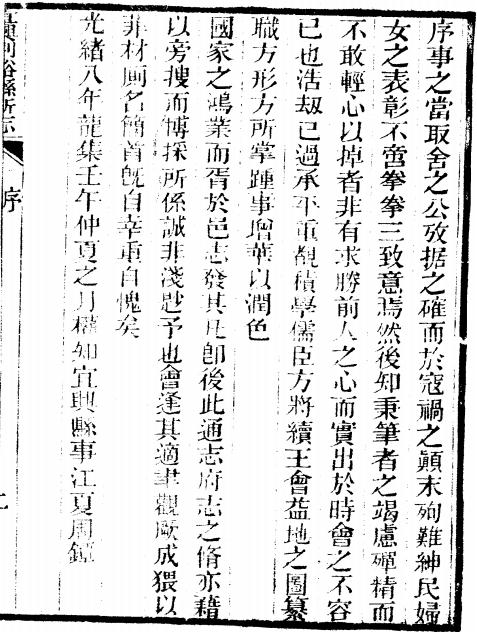 序事之當取舍之公攷据之確而於寇禍之顚末殉難紳民婦
女之表彰不啻拳拳三致意焉然後知秉筆者之竭慮殫精而
不敢輕心以掉者非有求勝前人之心而實出於時會之不容
已也浩刼已過承平重覩積學儒臣方將續王會益地之圖纂
職方形方所掌踵事增華以潤色
國家之鴻業而胥於邑志發其凡卽後此通志府志之脩亦藉
以旁搜而博採所係誠非淺尠予也會逢其適聿觀厥成猥以
菲材則名簡首旣自幸重自愧矣
光緖八年龍集壬午仲夏之月權知宜興縣事江夏周鎧
宜興荆谿縣新志
序
二